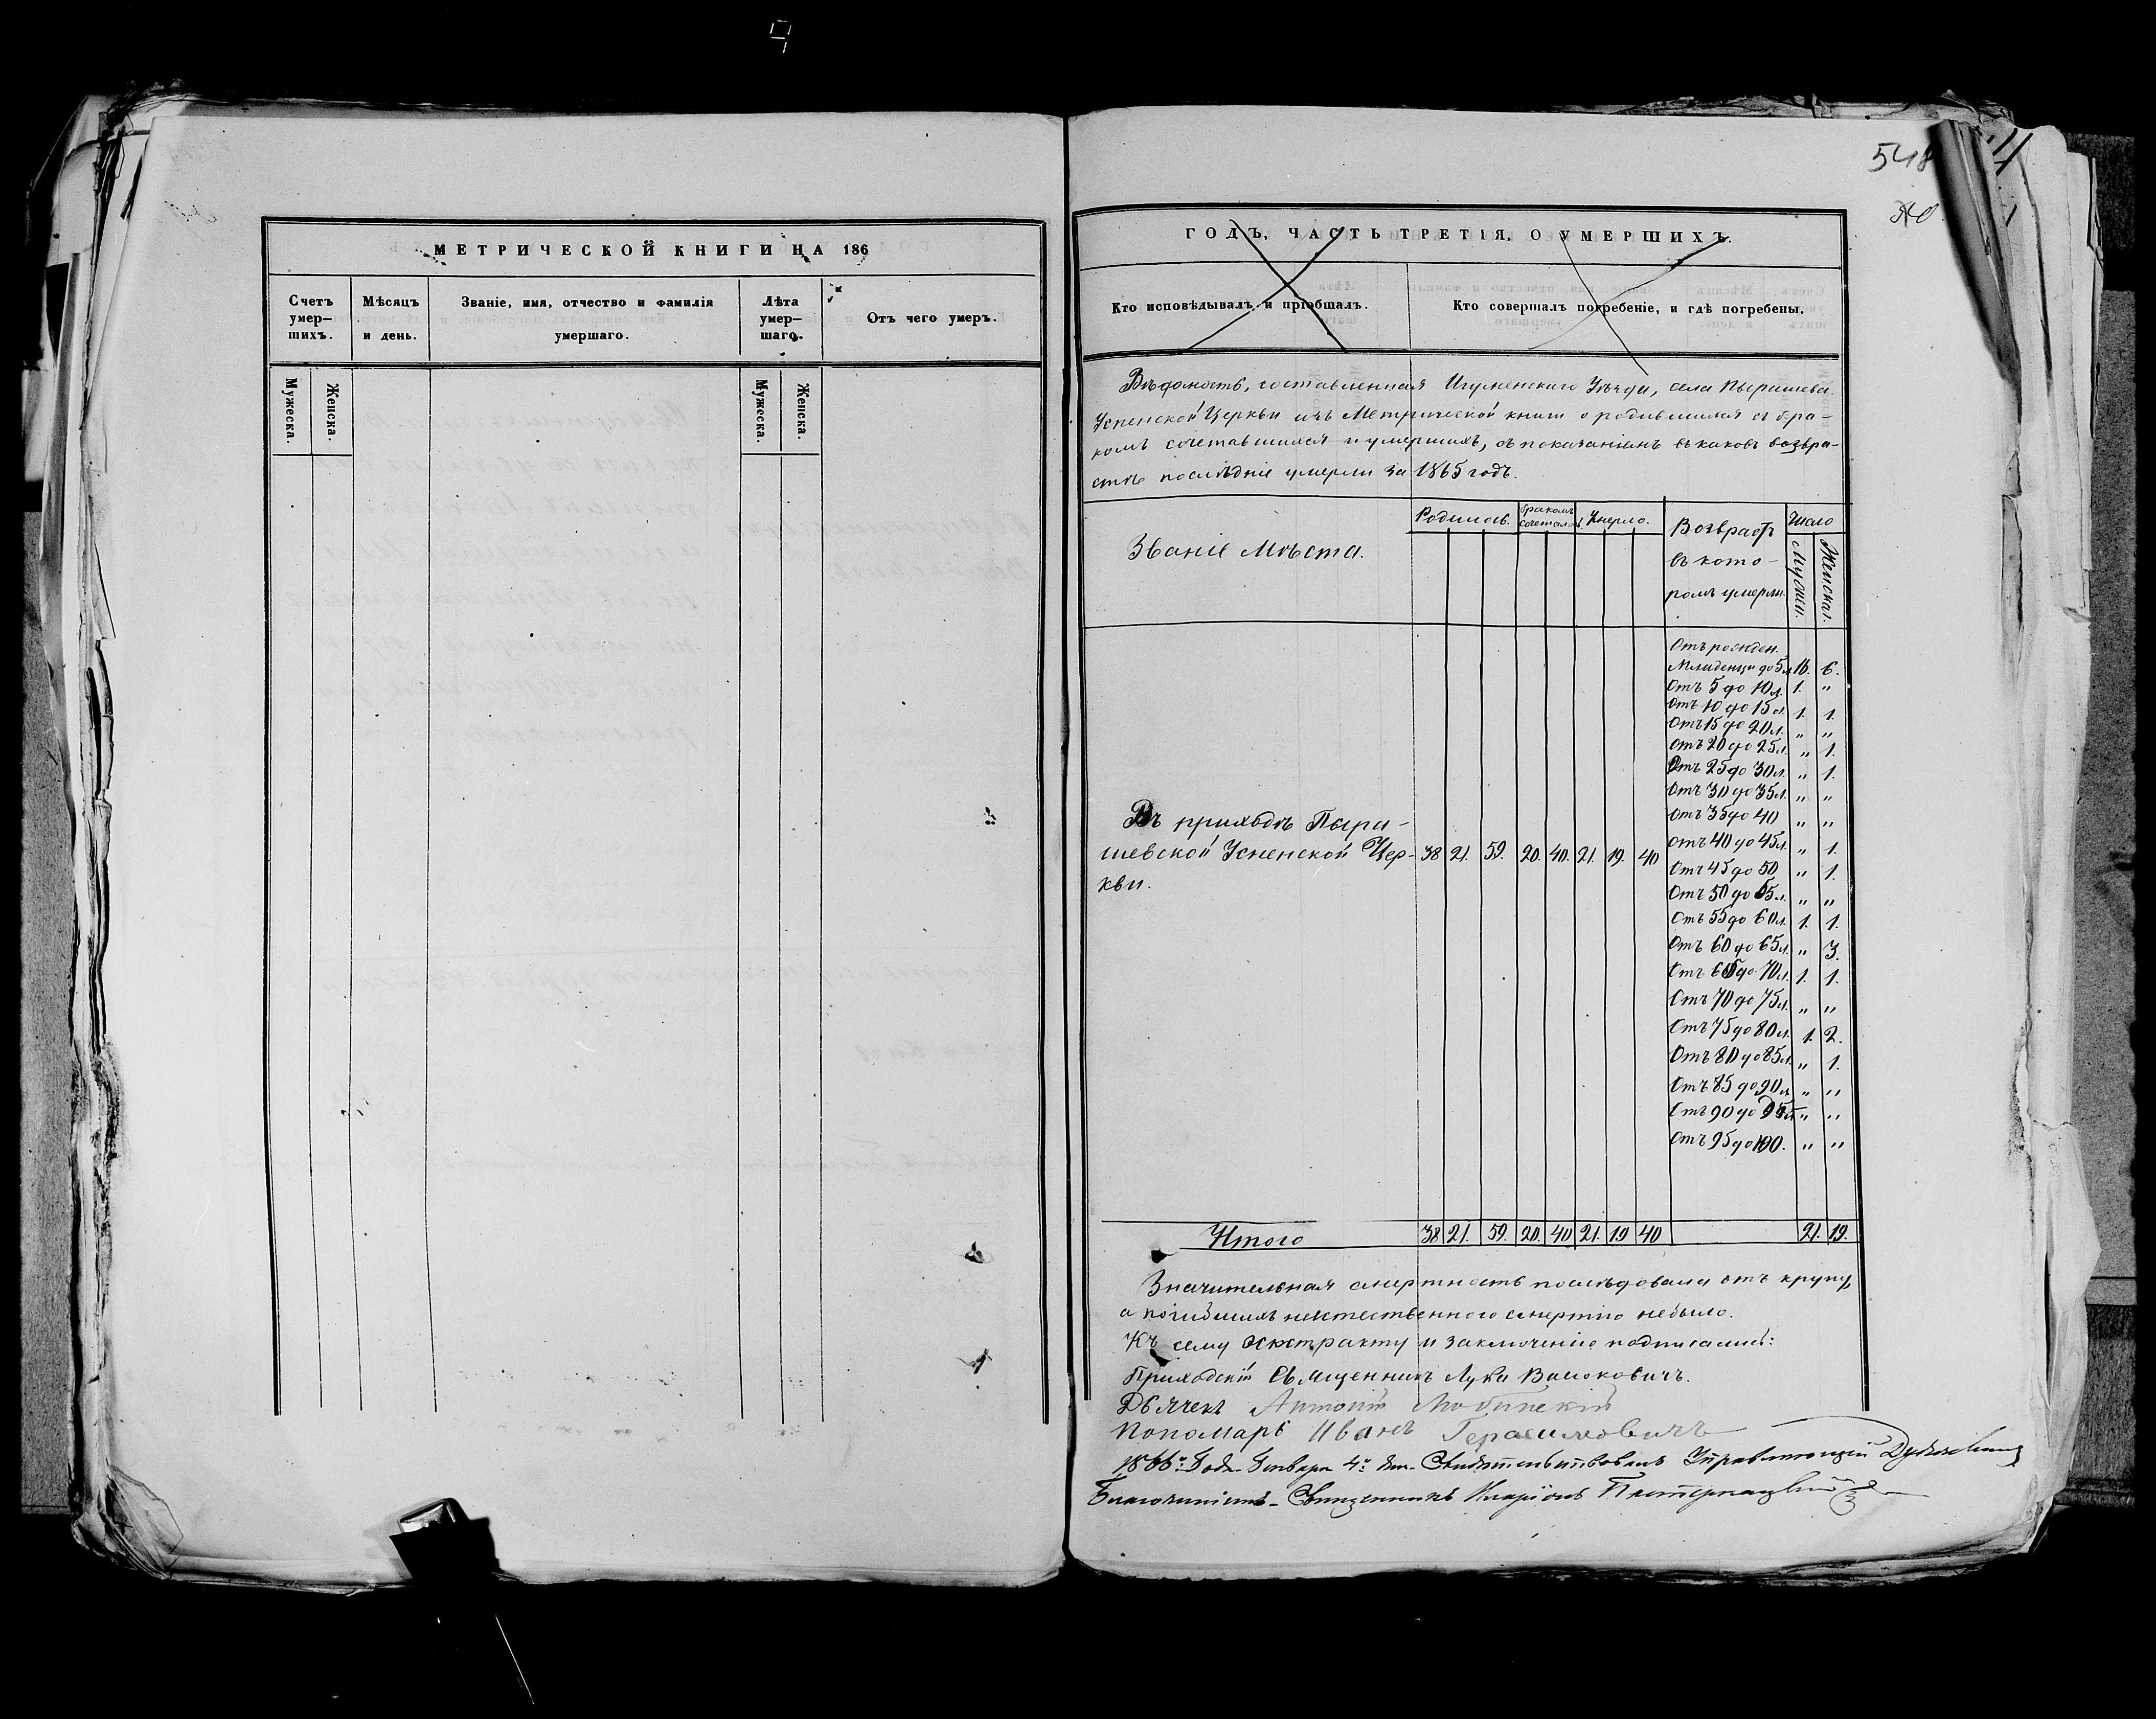 МЕТРИЧЕСКОЙ КНИГИ НА 186
Счетъ умер-шихъ.
Мѣсяцъ и день.
Званіе, имя, отчество и фамилія умершаго.
Лѣта умер-шаго.
Отъ чего умеръ.
Мужеска.
Женска.
Мужеска.
Женска.
548
ГОДЪ, ЧАСТЬ ТРЕТІЯ, О УМЕРШИХЪ.
Кто исповѣдывалъ и пріобщалъ.
Кто совершалъ погребеніе, и гдѣ погребены.
Вѣдомость, составленная Игуменскаго Уѣзда, села Пырашева
Успенской Церкви изъ Метрической книги о родившихся съ бра-
комъ сочетавшихся и умершихъ, съ показаніемъ въ каковъ возра-
стѣ послѣдніе умерли за 1865 годъ.
Званіе Мѣста.
Родилось.
бракомъ сочеталось
Умерло.
Возврастъ
въ кото-
ромъ умерли.
Число
Мужска.
Женская.
Отъ рожден.
Младенцы до 5 л. 16. 6.
Отъ 5 до 10 л. 1. "
Отъ 10 до 15 л. 1. 1.
Отъ 15 до 20 л. " "
Отъ 20 до 25 л. " 1.
Отъ 25 до 30 л. " 1.
Отъ 30 до 35 л. " "
Отъ 35 до 40 " "
Отъ 40 до 45 л. " 1.
Отъ 45 до 50 " 1.
Отъ 50 до 55 л. " "
Отъ 55 до 60 л. 1. 1.
Отъ 60 до 65 л. " 3.
Отъ 65 до 70 л. 1. 1.
Отъ 70 до 75 л. " "
Отъ 75 до 80 л. 1. 2.
Отъ 80 до 85 л. " 1.
Отъ 85 до 90 л. " "
Отъ 90 до 95 л. " "
Отъ 95 до 100. " "
Въ приходѣ Пыра-
шевской Успенской Цер- 38 21. 59. 20. 40. 21. 19. 40
кви.
Итого 38 21. 59. 20. 40 21. 19 40 21. 19.
Значительная смертность послѣдовала отъ крупу,
а погибшихъ неестественного смертію небыло.
Къ сему экстракту и заключенію подписались:
Приходскій Священникъ Лука
Дьячекъ Антоній
Пономарь Иванъ Герасимовичъ
1866 года Января 4 дня Свидѣтельствовалъ Управляющій
Благочиніемъ Священникъ Иларіонъ